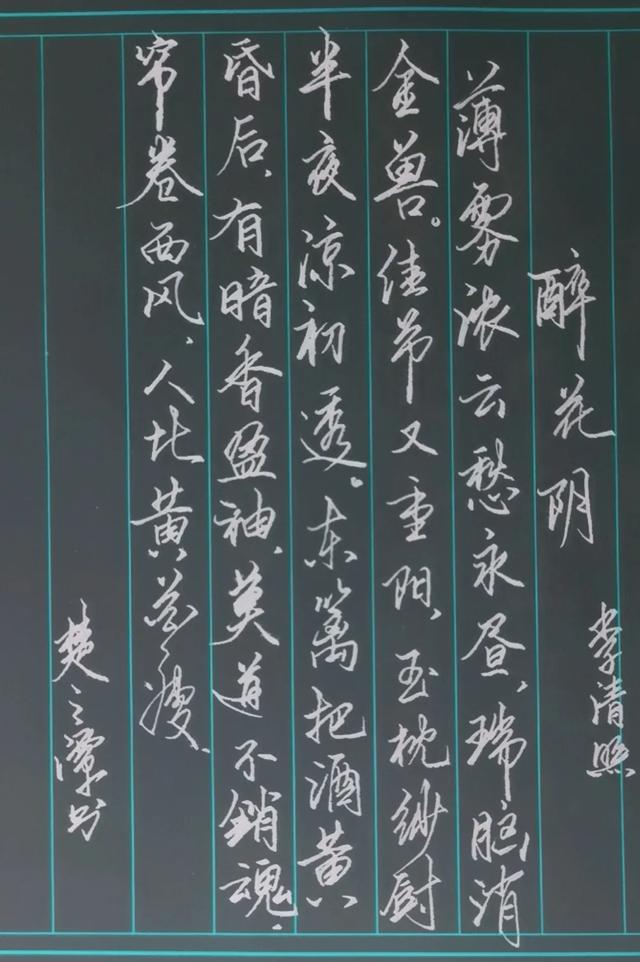 醉花阴
李清照
薄雾浓云愁永昼,瑞脑消
金兽。佳节又重阳,玉枕纱厨
半夜凉初透。东篱把酒黄
昏后,有暗香盈袖,莫道不销魂,
帘卷西风,人比黄花瘦。
楚之潭书